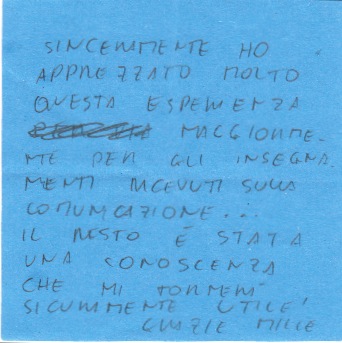 SINCERAMENTE HO
APPREZZATO MOLTO
QUESTA ESPERIENZA
MAGGIORME-
NTE PER GLI INSEGNA-
MENTI RICEVUTI SULLA
COMUNICAZIONE...
IL RESTO È STATA
UNA CONOSCENZA
CHE MI TORNERÀ
SICURAMENTE UTILE
GRAZIE MILLE